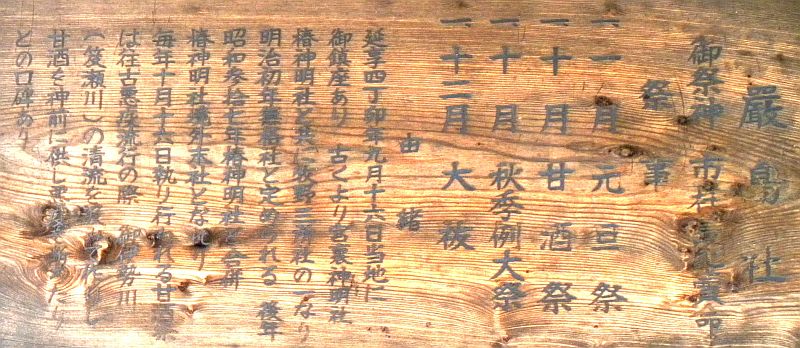 嚴島社
御祭神 市杵嶋姫命
祭事
一 一月元旦祭
一 十月甘酒祭
一 十月秋季例大祭
一 十二月大祓
由緒
延享四丁卯年九月十六日当地に
御鎮座あり 古くより宮裏神明社
椿神明社と共に牧野三所社の一なり
明治初年無格社と定められる 後年
昭和参拾七年椿神明社に合併
椿神明社境外末社となれり
毎年十月十六日執り行われる甘酒祭
は往古悪疫流行の際 御伊勢川
(笈瀬川)の清流を
甘酒を神前に供し
との口碑あり